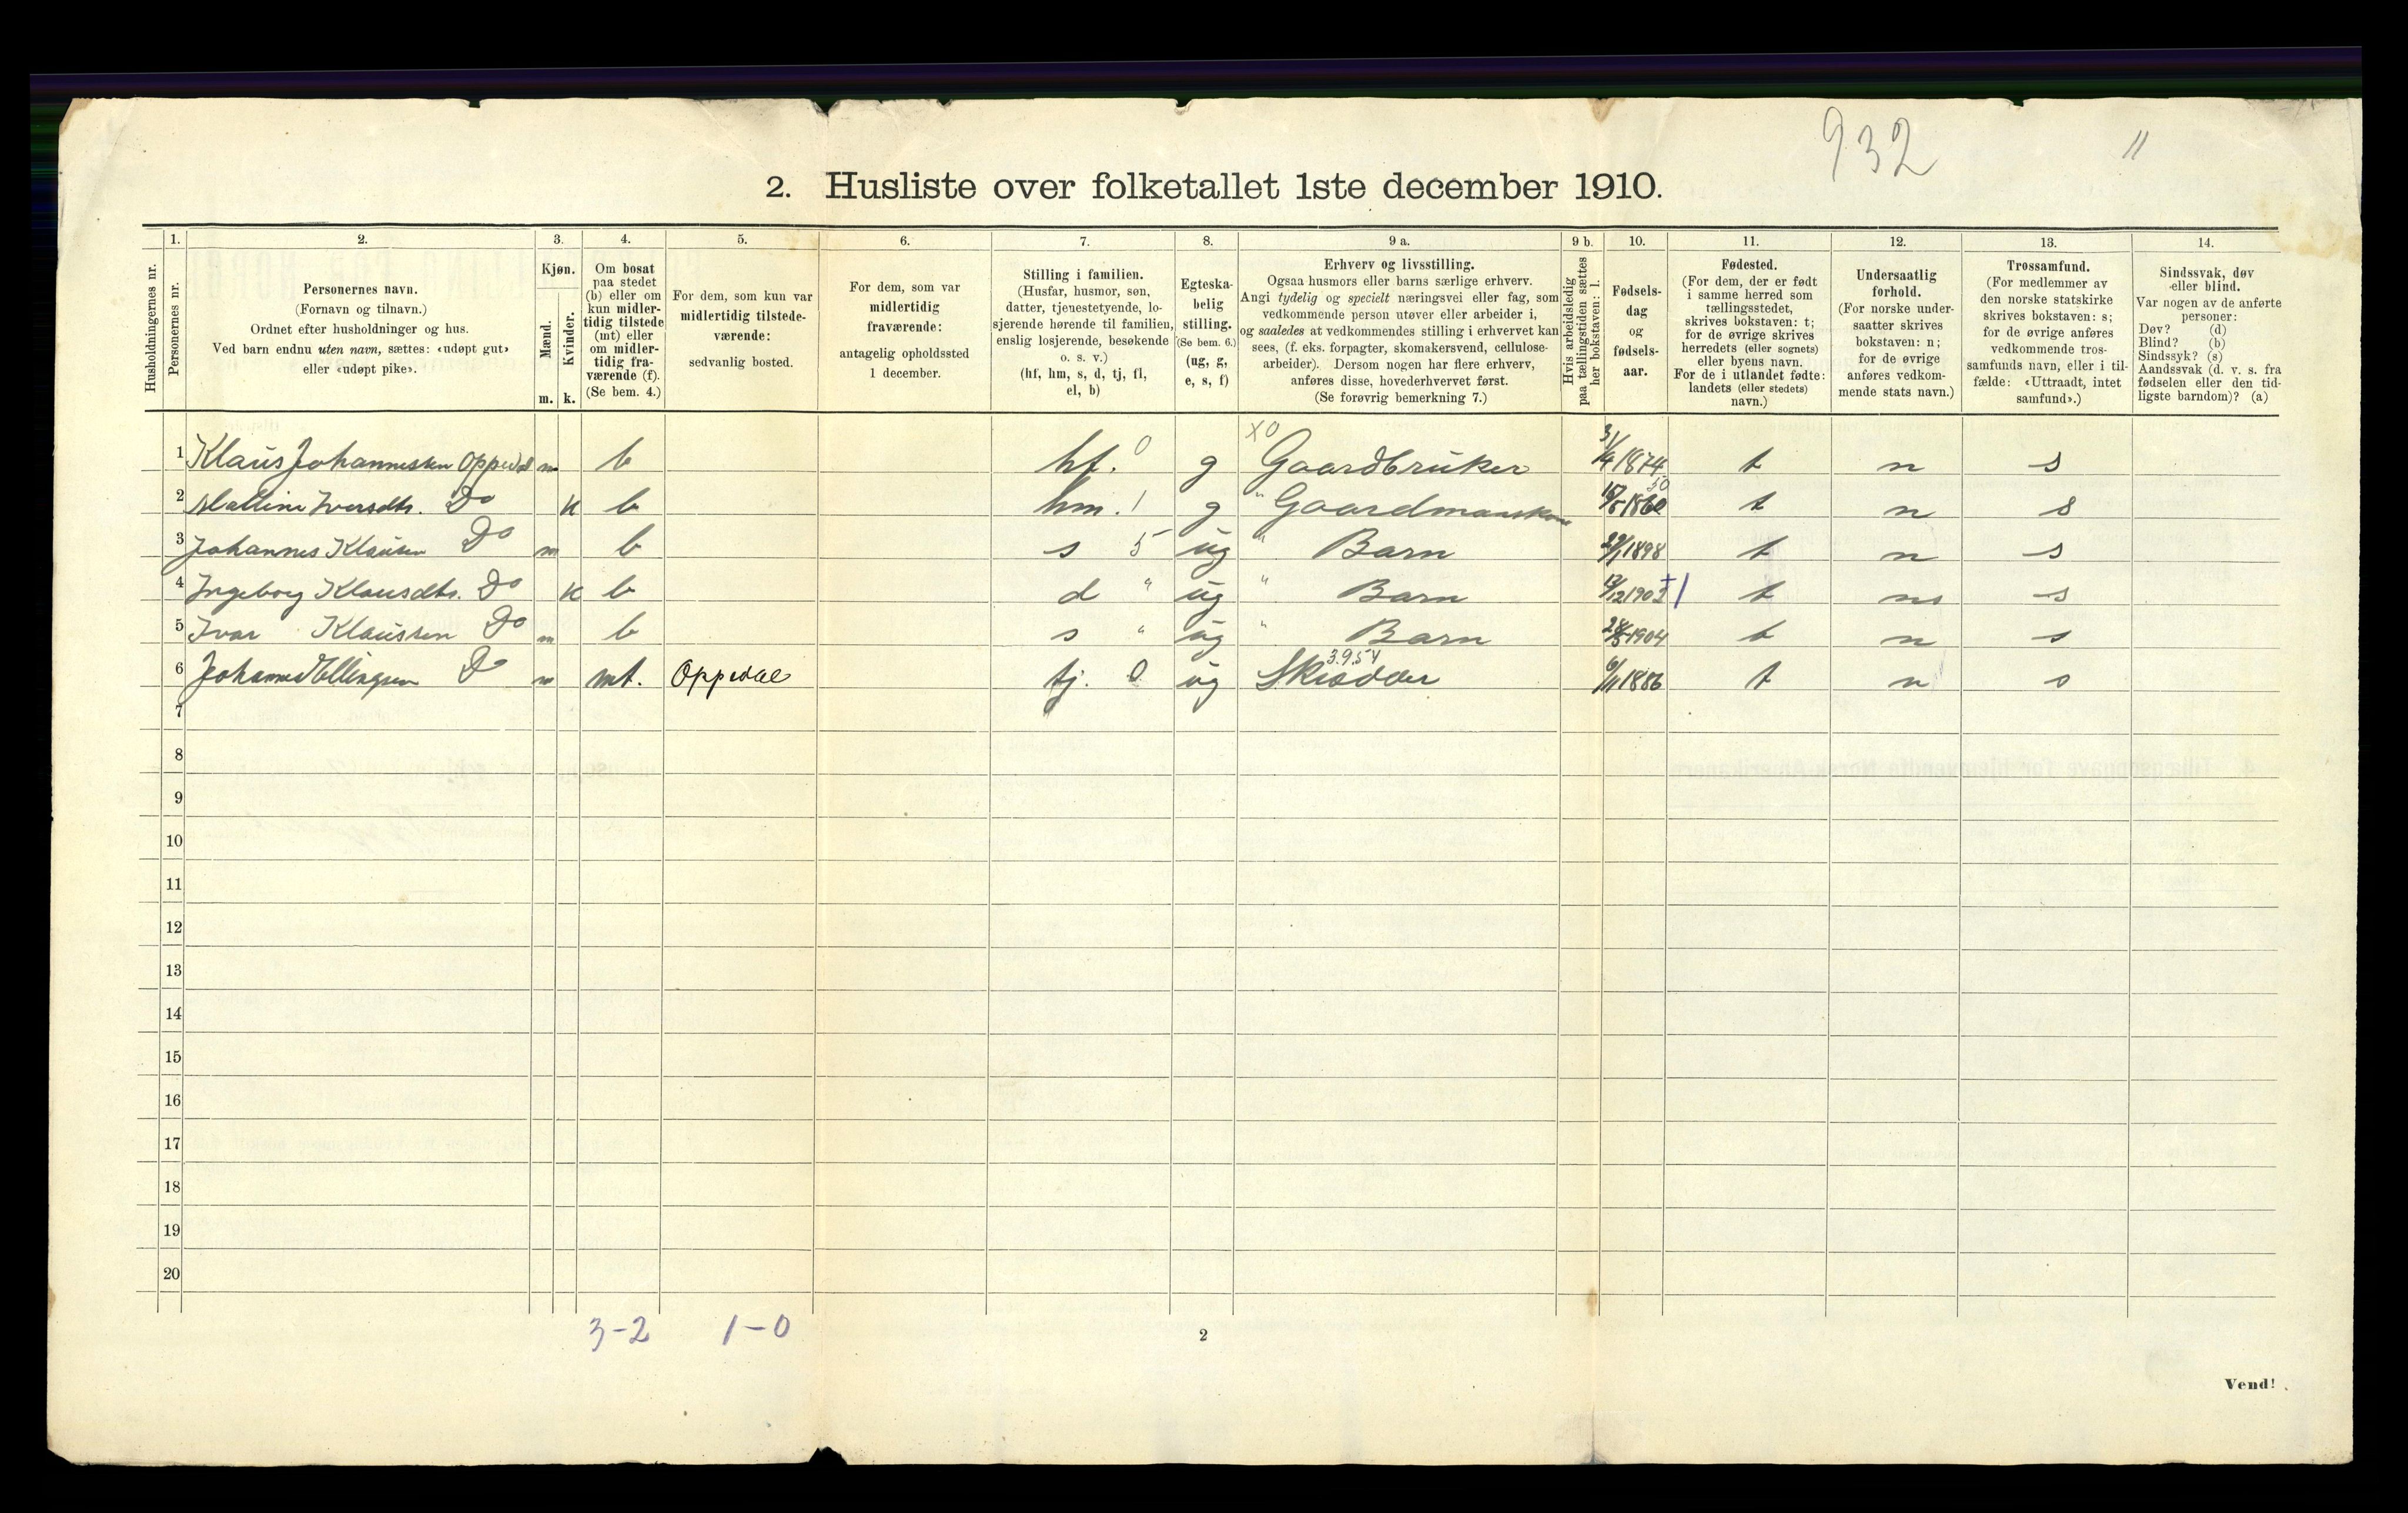 932
11
2. Husliste over folketallet 1ste december 1910.
1. 2. 3. 4. 5. 6. 7. 8. 9 a. 9 b. 10. 11. 12. 13. 14.
Husholdningernes nr.
Personernes nr.
Personernes navn.
(Fornavn og tilnavn.)
Ordnet efter husholdninger og hus.
Ved barn endnu uten navn, sættes: «udøpt gut»
eller «udøpt pike».
Kjøn.
Mænd.
Kvinder.
m. k.
Om bosat
paa stedet
(b) eller om
kun midler-
tidig tilstede
(mt) eller
om midler-
tidig fra-
værende (f).
(Se bem. 4.)
For dem, som kun var
midlertidig tilstede-
værende:
sedvanlig bosted.
For dem, som var
midlertidig
fraværende:
antagelig opholdssted
1 december.
Stilling i familien.
(Husfar, husmor, søn,
datter, tjenestetyende, lo-
sjerende hørende til familien,
enslig losjerende, besøkende
o. s. v.)
(hf, hm, s, d, tj, fl,
el, b)
Egteska-
belig
stilling.
(Se bem. 6.)
(ug, g,
e, s, f)
Erhverv og livsstilling.
Ogsaa husmors eller barns særlige erhverv.
Angi tydelig og specielt næringsvei eller fag, som
vedkommende person utøver eller arbeider i,
og saaledes at vedkommendes stilling i erhvervet kan
sees, (f. eks. forpagter, skomakersvend, cellulose-
arbeider). Dersom nogen har flere erhverv,
anføres disse, hovederhvervet først.
(Se forøvrig bemerkning 7.)
Hvis arbeidsledig
paa tællingstiden sættes
her bokstaven: l.
Fødsels-
dag
og
fødsels-
aar.
Fødested.
(For dem, der er født
i samme herred som
tællingsstedet,
skrives bokstaven: t;
for de øvrige skrives
herredets (eller sognets)
eller byens navn.
For de i utlandet fødte:
landets (eller stedets)
navn.)
Undersaatlig
forhold.
(For norske under-
saatter skrives
bokstaven: n;
for de øvrige
anføres vedkom-
mende stats navn.)
Trossamfund.
(For medlemmer av
den norske statskirke
skrives bokstaven: s;
for de øvrige anføres
vedkommende tros-
samfunds navn, eller i til-
fælde: «Uttraadt, intet
samfund».)
Sindssvak, døv
eller blind.
Var nogen av de anførte
personer:
Døv? (d)
Blind? (b)
Sindssyk? (s)
Aandssvak (d. v. s. fra
fødselen eller den tid-
ligste barndom)? (a)
1 Klaus Johannessen Oppedal m b hf. 0 g XO Gaardbruker 1874 t n s
2 Iversdtr. Do k b hm. 1 g " Gaardmanskone t n s
3 Johannes Klausen Do m b s 5 ug " Barn 1898 t n s
4 Ingeborg Klausdtr. Do k b d " ug " Barn t n s
5 Ivar Klaussen Do m b s " ug " Barn 1904 t n s
6 Johannes Ellingsen Do m mt. Oppedal tj. 0 ug Skrædder 3.9.54 6/11 1886 t n s
7
8
9
10
11
12
13
14
15
16
17
18
19
20
3-2 1-0
2
Vend!